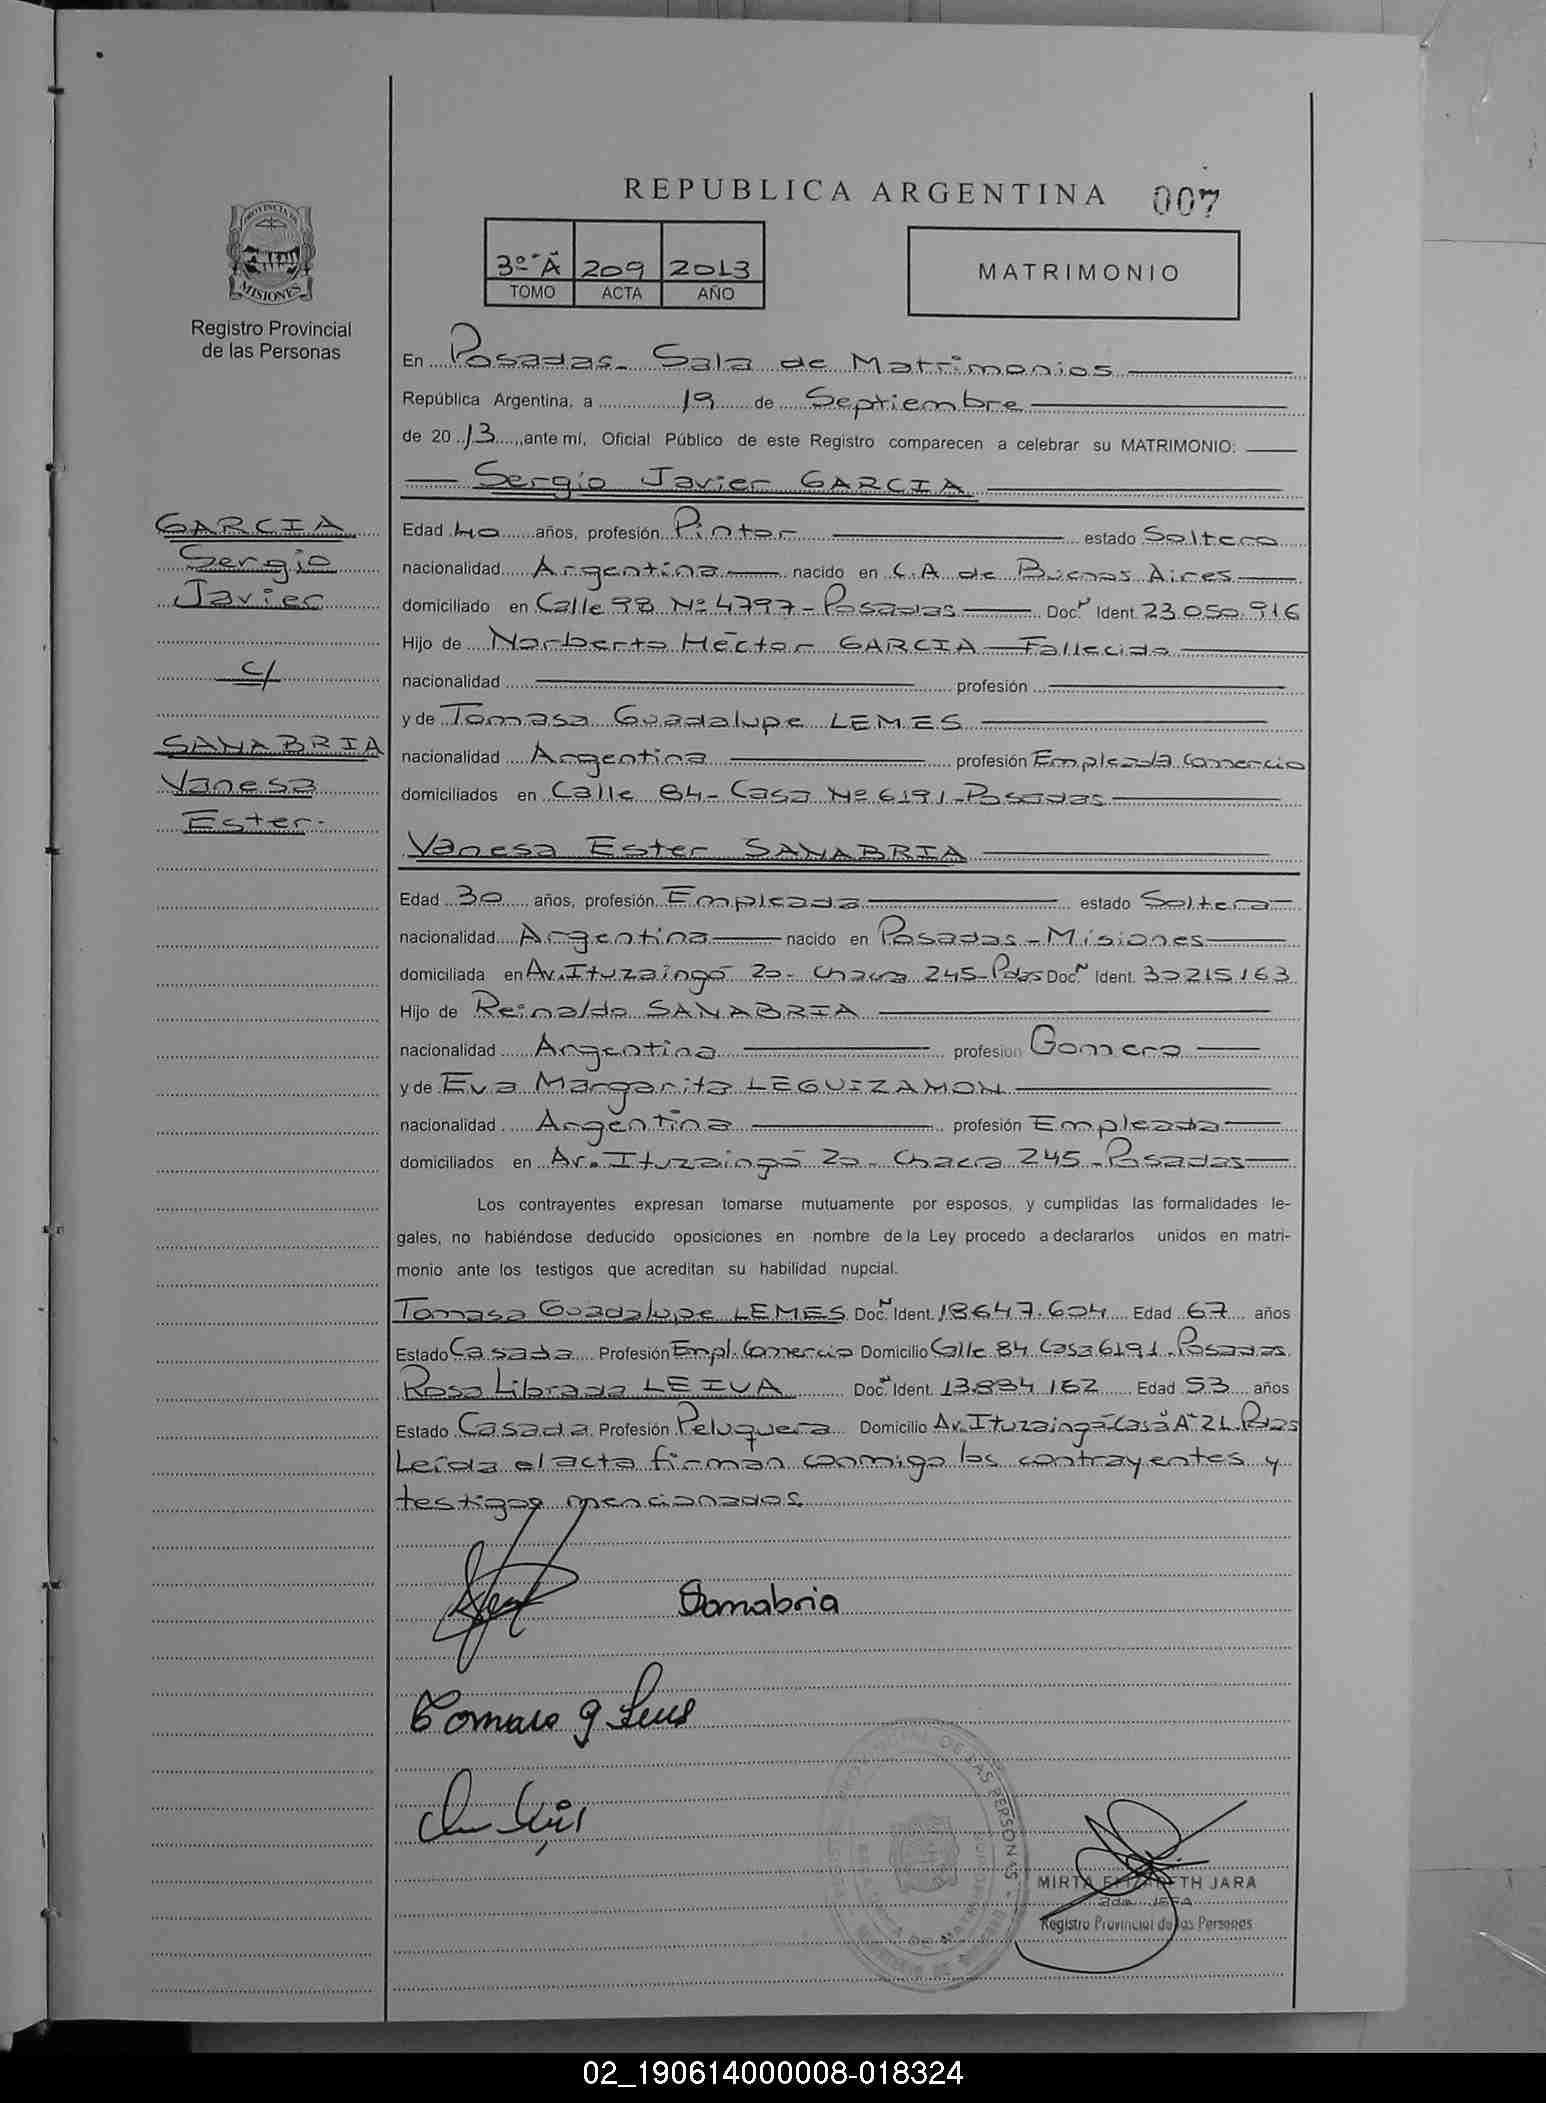 REPUBLICA ARGENTINA 007
PROVINCIA DE
MISIONES
Registro Provincial
de las Personas
3º "A" 209 2013
TOMO ACTA AÑO
MATRIMONIO
En Posadas - Sala de Matrimonios
República Argentina, a 19 de Septiembre
de 20 13, ante mí, Oficial Público de este Registro comparecen a celebrar su MATRIMONIO:
Sergio Javier GARCIA
GARCIA
Sergio
Javier
c/
SANABRIA
Vanesa
Ester.
Edad 40 años, profesión Pintor estado Soltero
nacionalidad Argentina nacido en C.A de Buenos Aires
domiciliado en Calle 98 Nº 4797 - Posadas Doc. N Ident. 23.050.916
Hijo de Norberto Héctor GARCIA - Fallecido
nacionalidad profesión
y de Tomasa Guadalupe LEMES
nacionalidad Argentina profesión Empleada Comercio
domiciliados en Calle 84 - Casa Nº 6191 - Posadas
Vanesa Ester SANABRIA
Edad 30 años, profesión Empleada estado Soltera
nacionalidad Argentina nacido en Posadas - Misiones
domiciliada en Av. Ituzaingó 20 - Chacra 245 - Pdas Doc. N Ident. 30.215.163
Hijo de Reinaldo SANABRIA
nacionalidad Argentina profesion Gomero
y de Eva Margarita LEGUIZAMON
nacionalidad Argentina profesión Empleada
domiciliados en Av. Ituzaingó 20 - Chacra 245 - Posadas
Los contrayentes expresan tomarse mutuamente por esposos, y cumplidas las formalidades le-
gales, no habiéndose deducido oposiciones en nombre de la Ley procedo a declararlos unidos en matri-
monio ante los testigos que acreditan su habilidad nupcial.
Tomasa Guadalupe LEMES Doc. N Ident. 18.647.604 Edad 67 años
Estado Casada Profesión Empl. Comercio Domicilio Calle 84 Casa 6191 - Posadas
Rosa Librada LEIVA Doc. N Ident. 13.894.162 Edad 53 años
Estado Casada Profesión Peluquera Domicilio Av. Ituzaingó - Casa "A" 2L. Pdas
Leída el acta firman conmigo los contrayentes y
testigos mencionados
Sanabria
MIRTA ELIZABETH JARA
JEFA
Registro Provincial de las Personas
02_190614000008-018324